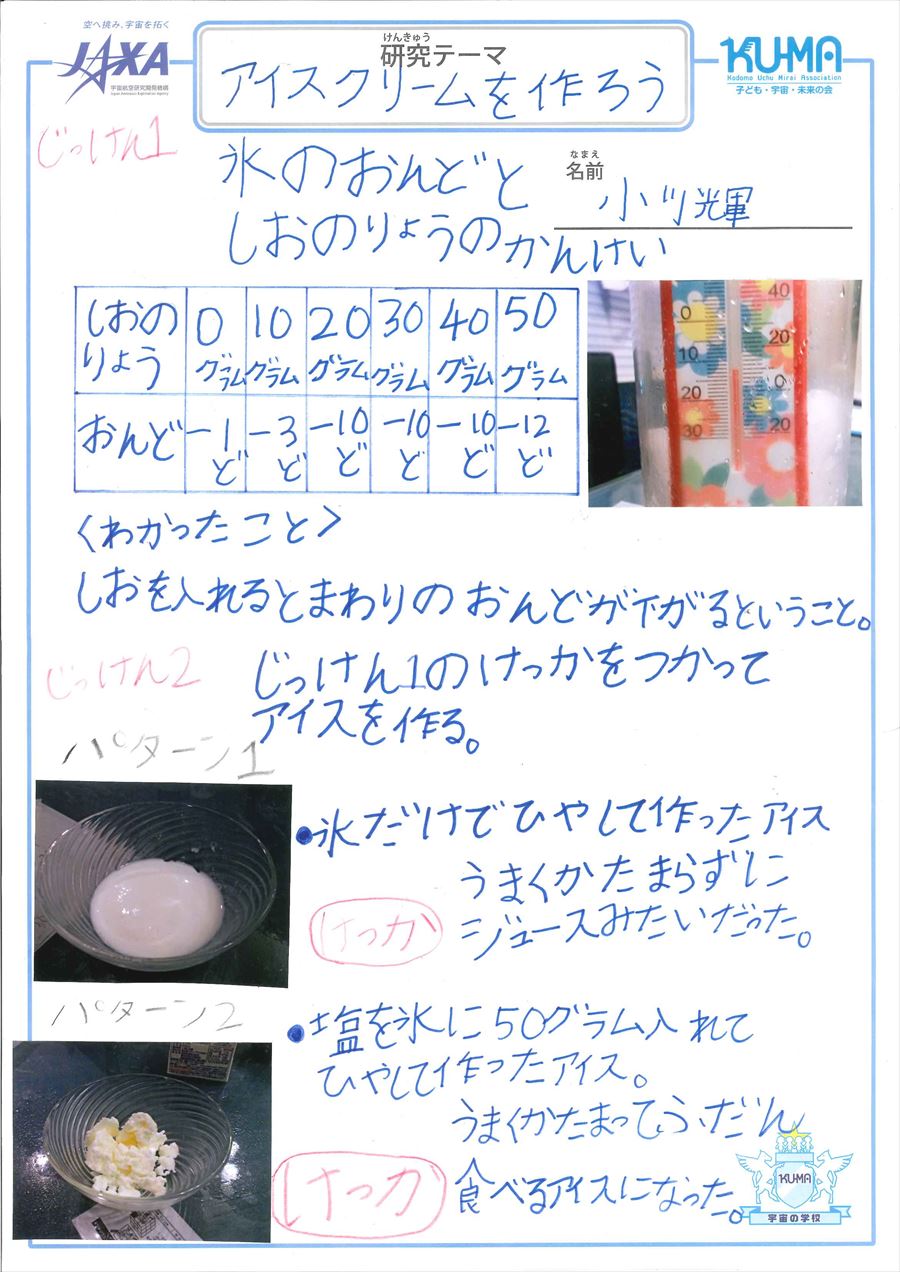 空へ挑み、宇宙を拓く
JAXA
宇宙航空研究開発機構
Japan Aerospace Exploration Agency
けんきゅう
研究テーマ
アイスクリームを作ろう
KU-MA
Kodomo Uchu Mirai Association
子ども・宇宙・未来の会
じっけん1
氷のおんどと
しおのりょうのかんけい
なまえ
名前
小ヅ光軍
しおのりょう 0グラム 10グラム 20グラム 30グラム 40グラム 50グラム
おんど -1ど -3ど -10ど -10ど -10ど -12ど
0 10 20 30
40 20 0 20
<わかったこと>
しおを入れるとまわりのおんどが下がるということ。
じっけん2
じっけん1のけっかをつかって
アイスを作る。
パターン1
●氷だけでひやして作ったアイス
うまくかたまらずに
けっか
ジュースみたいだった。
パターン2
●塩を氷に50グラム入れて
ひやして作ったアイス。
うまくかたまってふだん
けっか
食べるアイスになった。
KU-MA
宇宙の学校